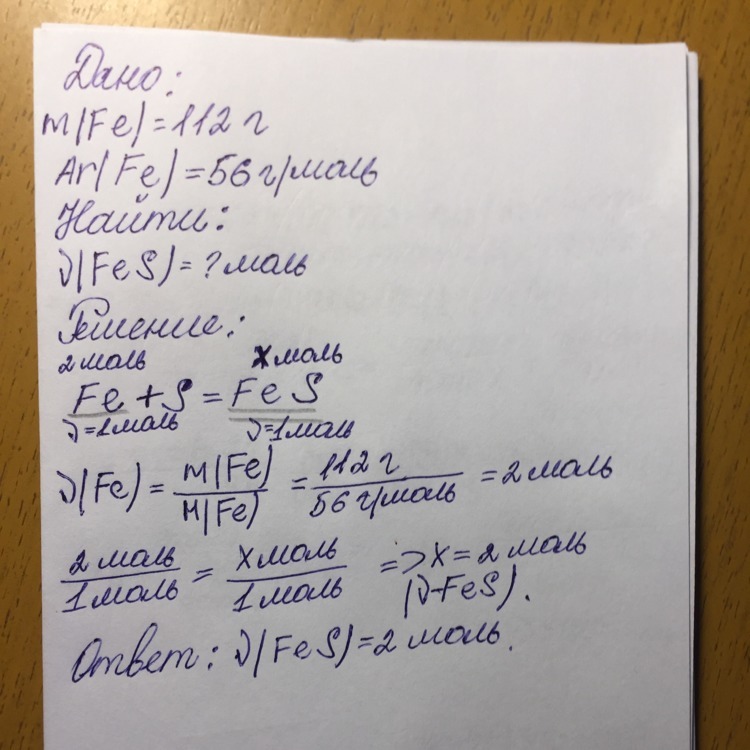 Дано:
m(Fe)=112 г
Ar(Fe)=56 г/моль
Найти:
ν(FeS)=? моль
Решение:
2 моль х моль
Fe + S = FeS
ν=1моль ν=1моль
ν(Fe) = m(Fe)/M(Fe) = 112 г/56 г/моль = 2 моль
2 моль/1 моль = х моль/1 моль => х = 2 моль
(ν-FeS).
Ответ: ν(FeS)=2 моль.